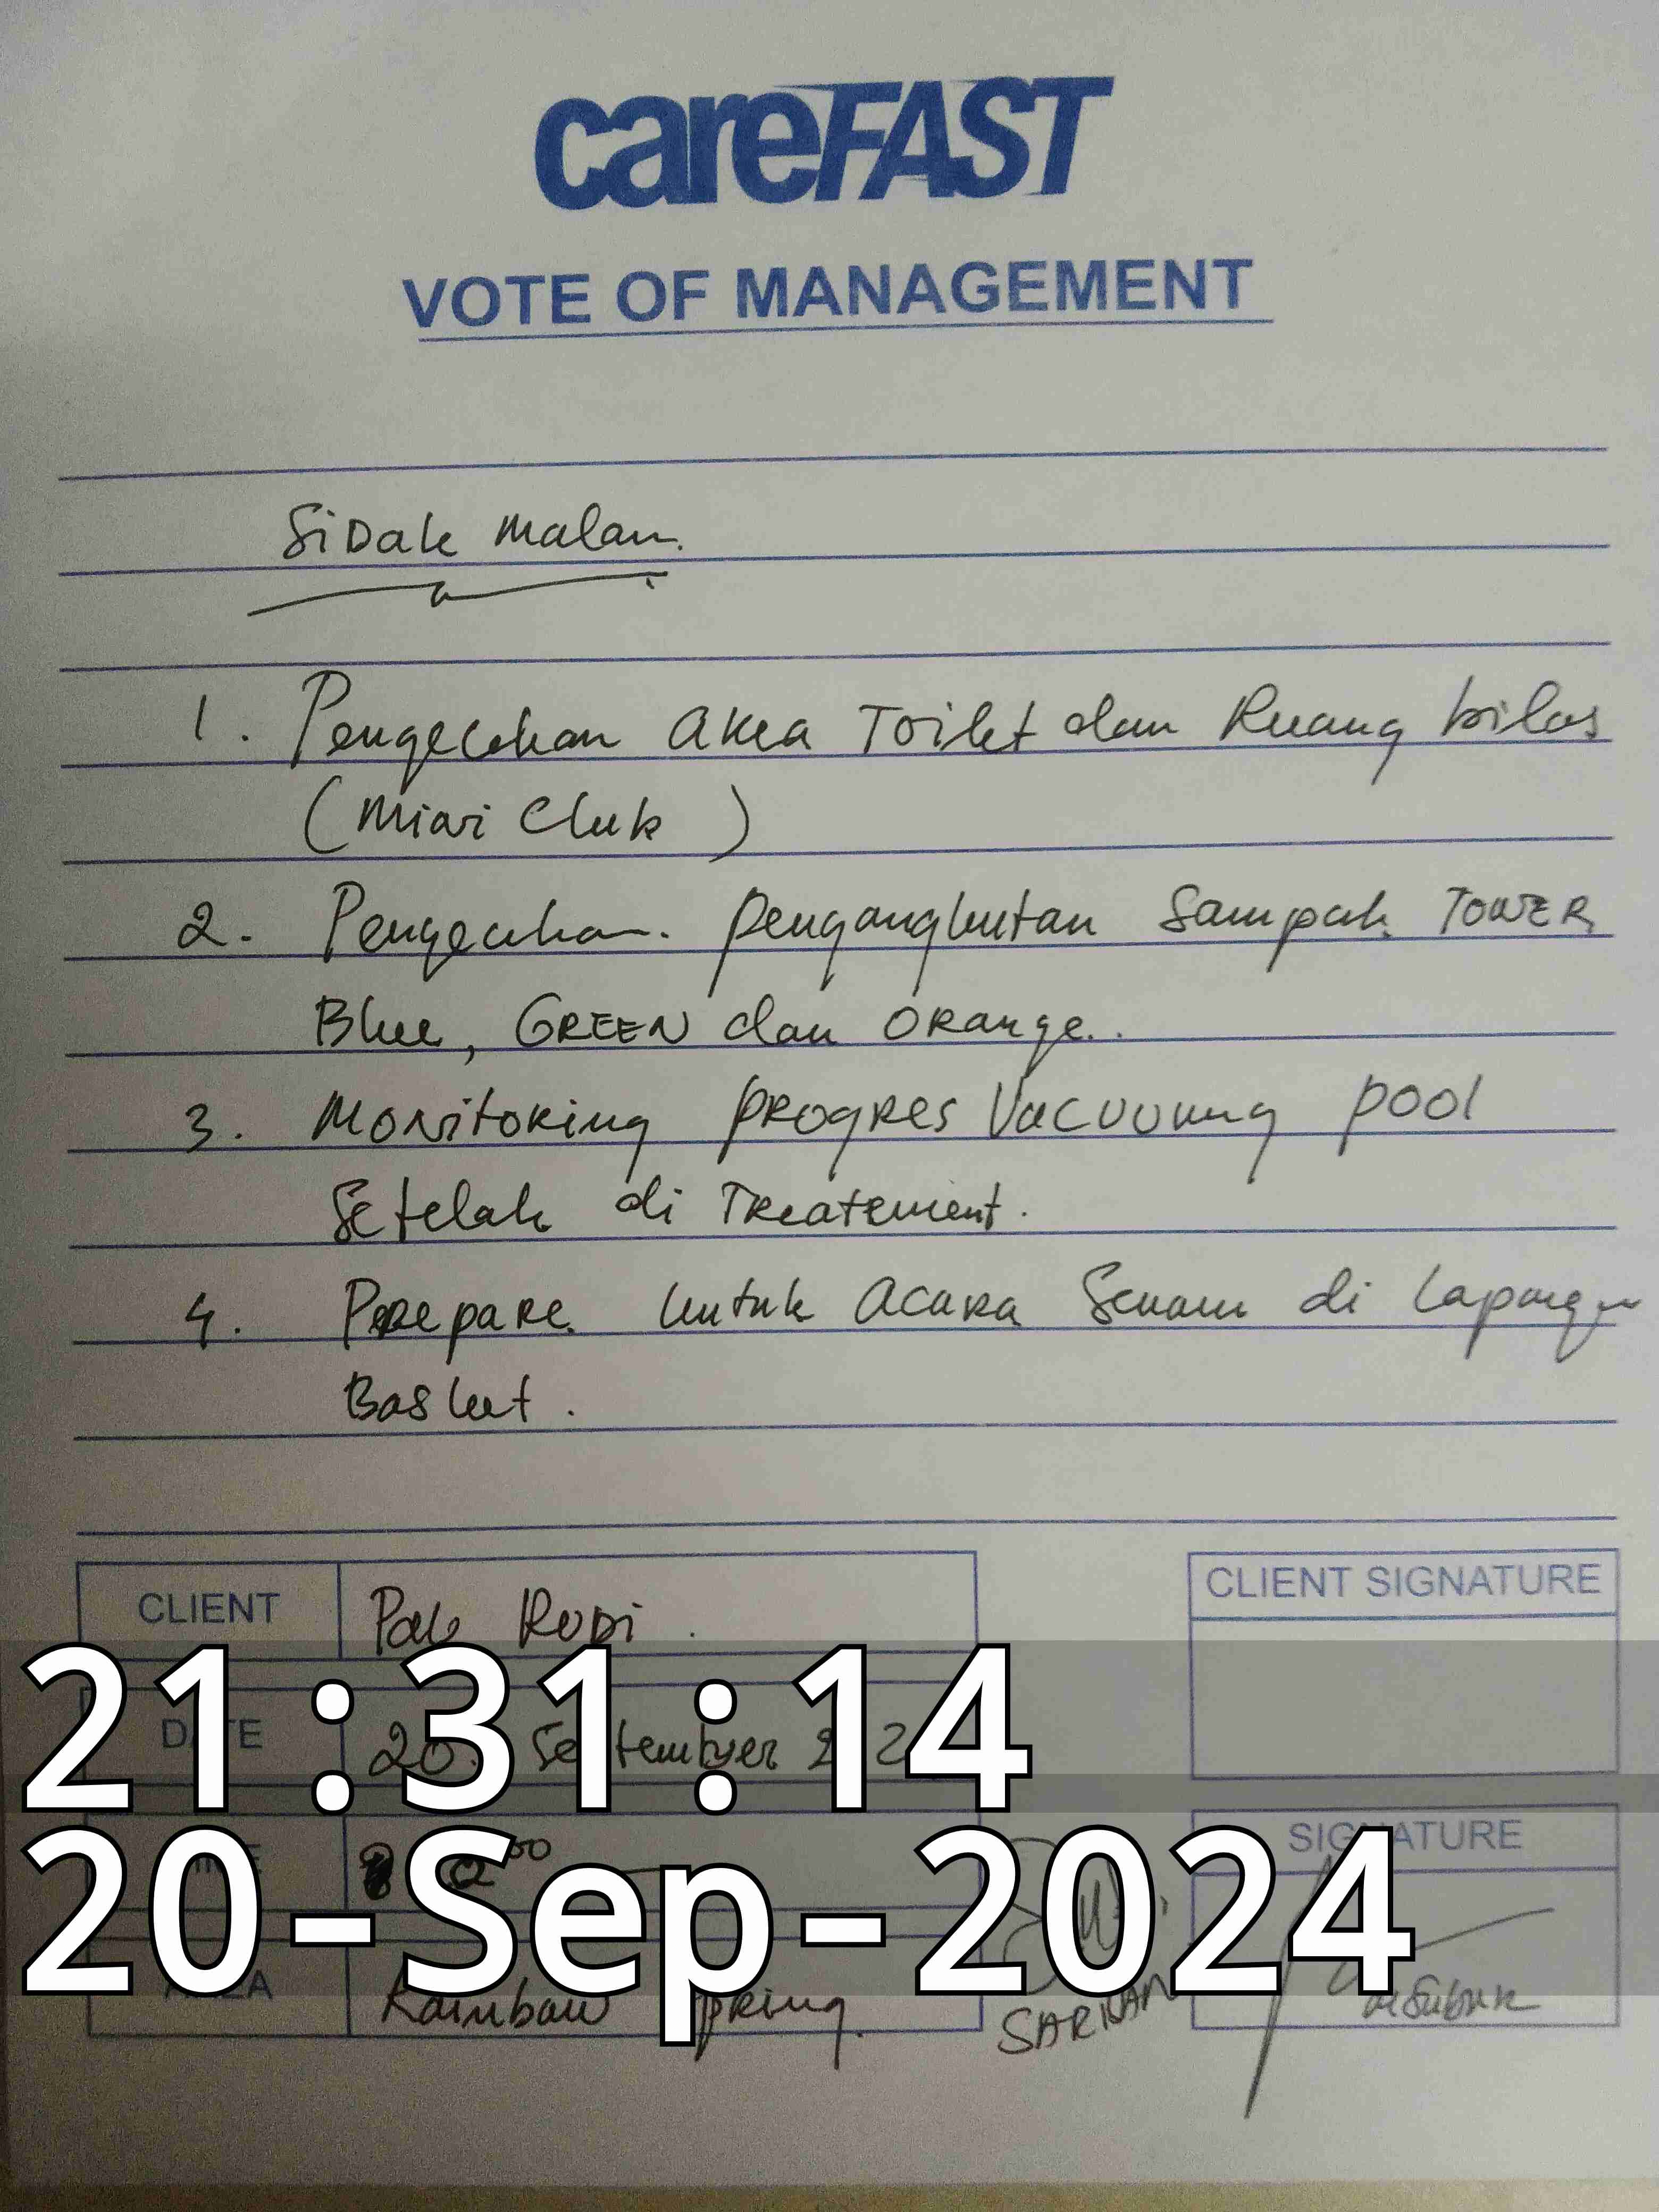 careFAST
VOTE OF MANAGEMENT
SiDak malam.
1. Pengecekan area Toilet dan Ruang bilas
(Mini Club)
2. Pengecekan. pengangkutan Sampah TOWER
Blue, GREEN dan ORange..
3. MONitoring progres Vacuung pool
Setelah di Treatement.
4. Prepare. untuk Acara Senam di Lapangan
Basket.
CLIENT Pak Rudi.
CLIENT SIGNATURE
21:31:14
DATE 20. September
SIGNATURE
20-Sep-2024
AREA Rainbow Spring.
SARKAN